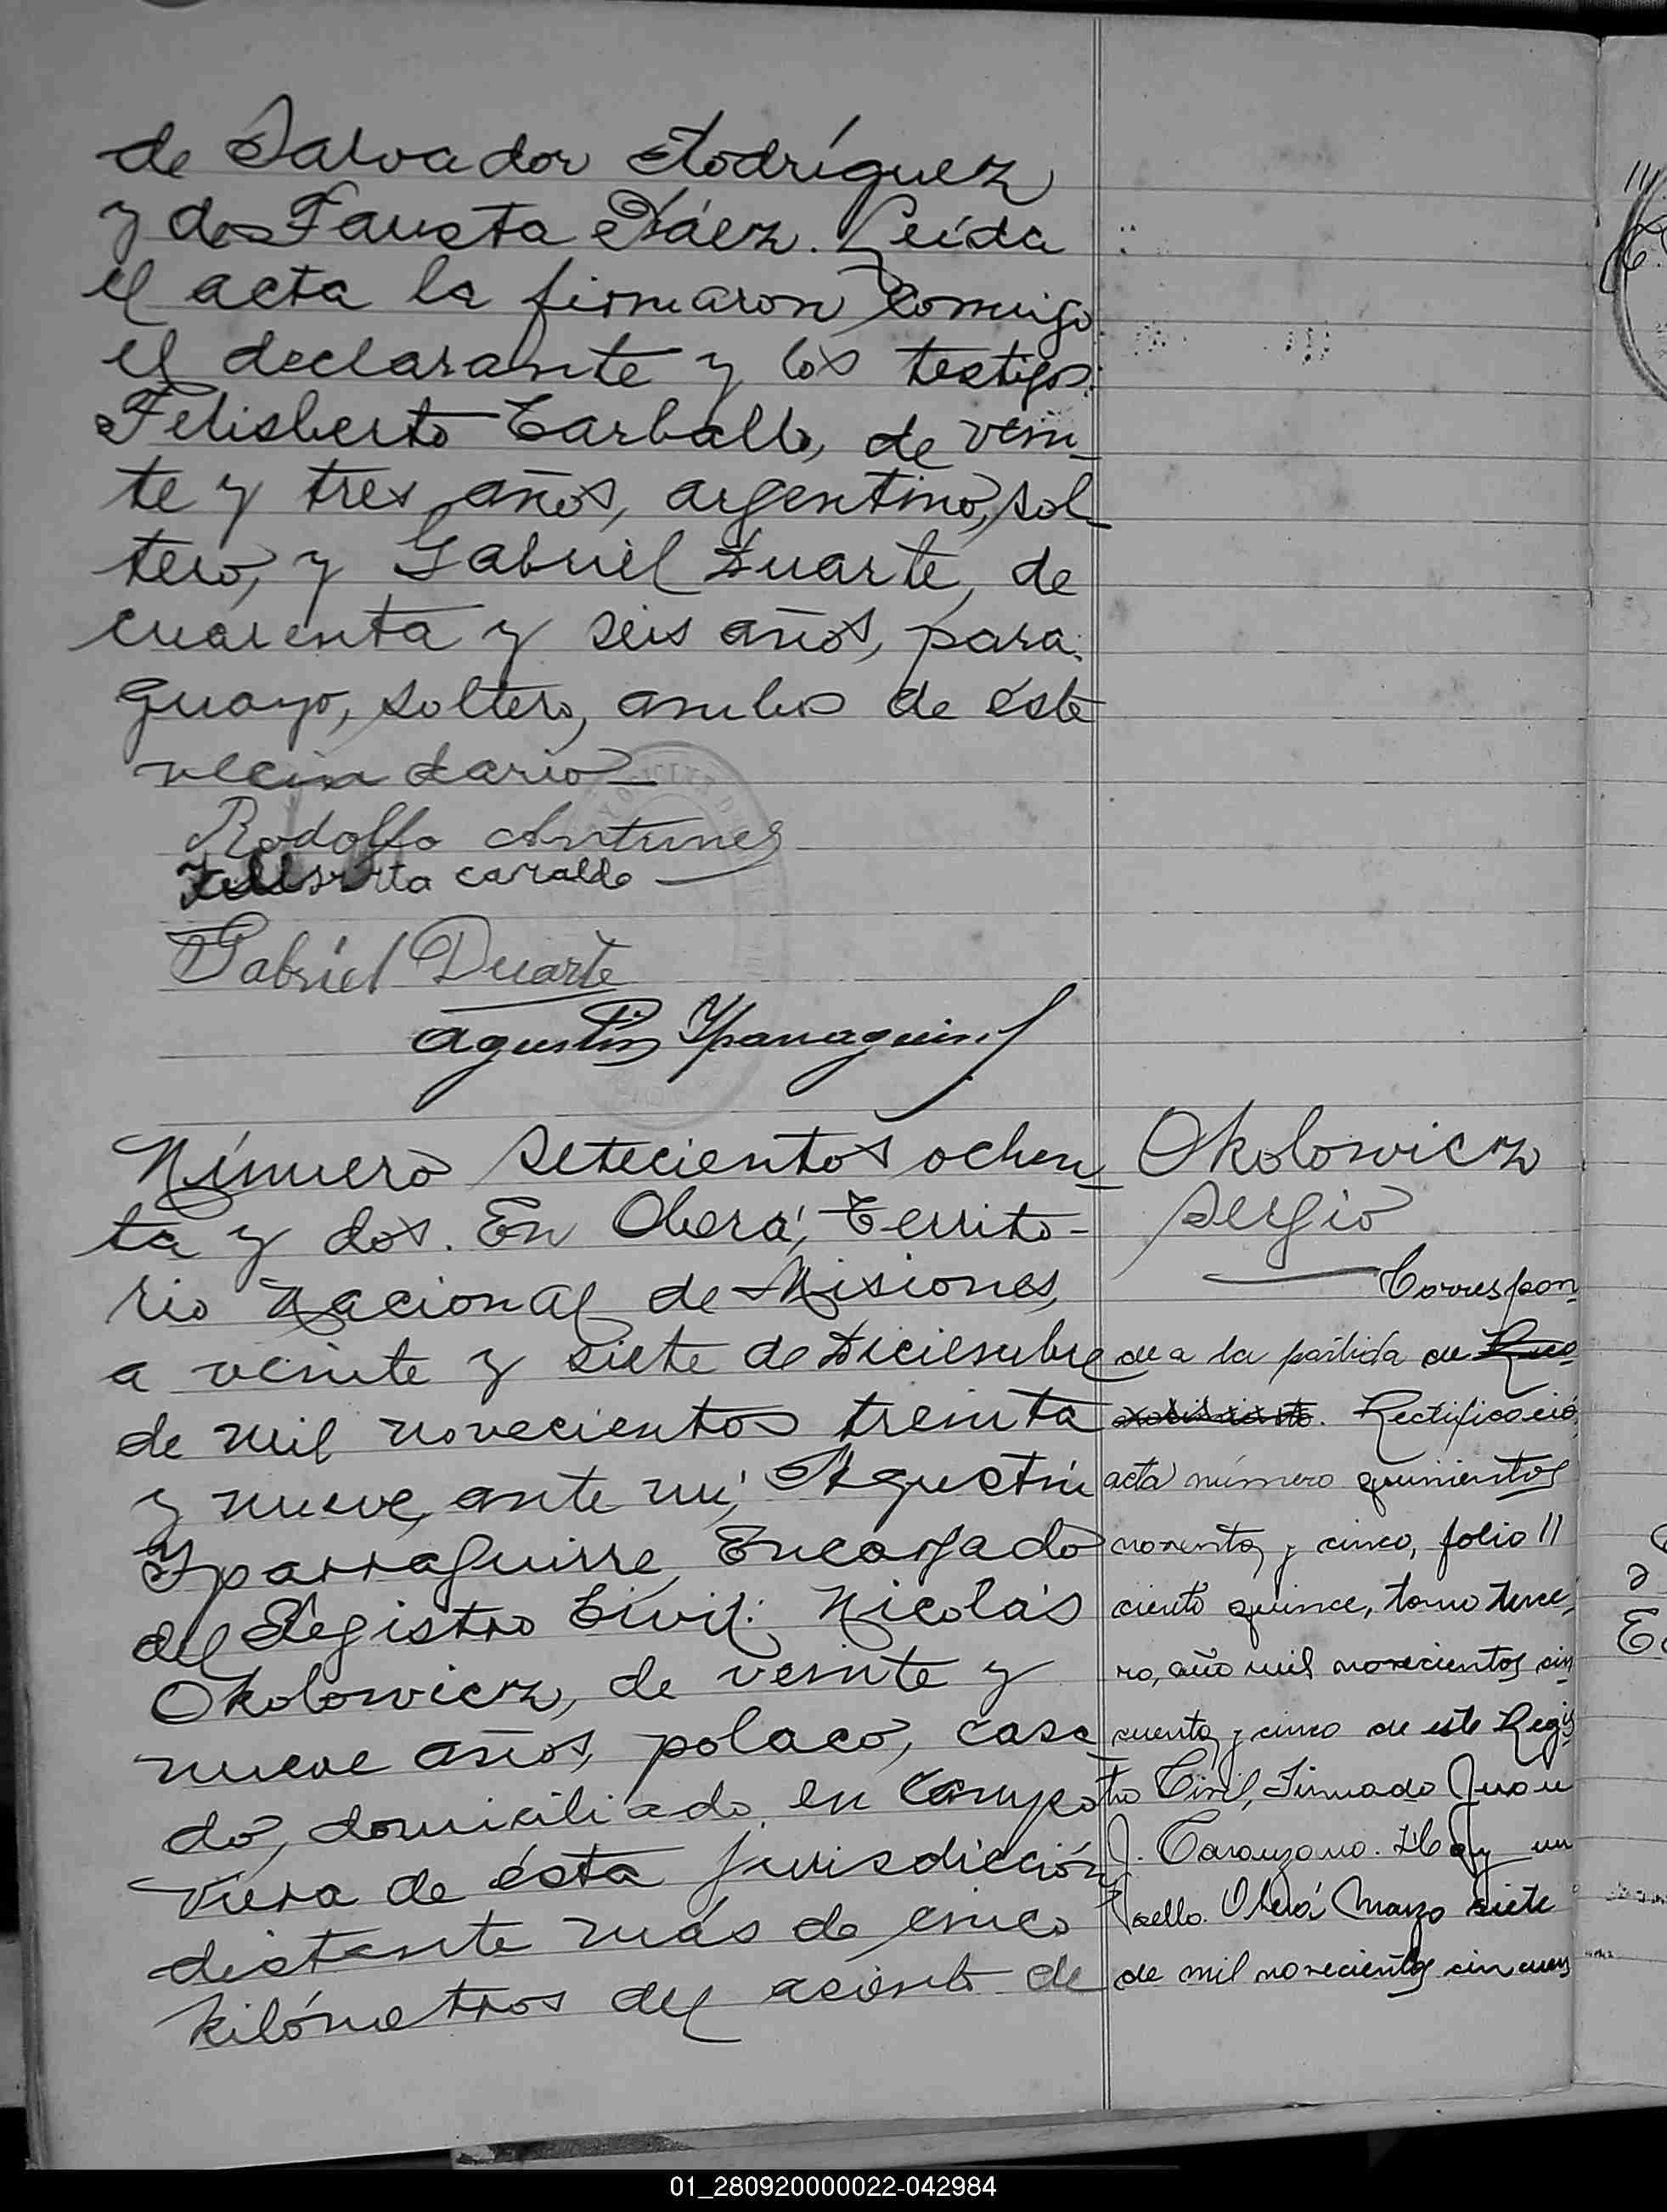 de Salvador Rodríguez
y de Fausta Báez. Leída
el acta la firmaron conmigo
el declarante y los testigos:
Felisberto Carballo, de vein-
te y tres años, argentino, sol-
tero, y Gabriel Duarte, de
cuarenta y seis años, para-
guayo, soltero, ambos de éste
vecindario
Rodolfo Antunes
caraldo
Gabriel Duarte
Agustín Yparraguirre
Número setecientos ochen-
ta y dos. En Oberá, Territo-
rio Nacional de Misiones,
a veinte y siete de Diciembre
de mil novecientos treinta
y nueve, ante mí, Agustín
Yparraguirre, Encargado
del Registro Civil: Nicolás
Okolowicz, de veinte y
nueve años, polaco, casa-
do, domiciliado en Campo
Viera de ésta jurisdicción
distante más de cinco
kilómetros del asiento de
Okolowicz
Sergio
Correspon-
de a la partida de
Rectificació
acta número quinientos
noventa y cinco, folio
ciento quince, tomo terce-
ro, año mil novecientos cin
cuenta y cinco de este Regis
tro Civil, Firmado Juan
J. Caranzano. Hay un
sello. Oberá Marzo siete
de mil novecientos cincuen
01_280920000022-042984